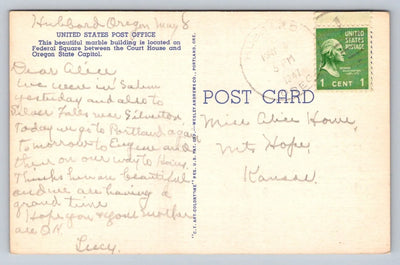 Hubbard Oregon May 8
UNITED STATES POST OFFICE
This beautiful marble building is located on
Federal Square between the Court House and
Oregon State Capitol.
Dear Alice
We were in Salem
yesterday and also to
Silver Falls near Silverton
Today we go to Portland again
tomorrow to Eugene and
then on our way to
Things here are beautiful
and we are having a
grand time
Hope you & your mother
are O.K.
Lucy.
POST CARD
UNITED STATES
POSTAGE
1 CENT 1
Miss Alice Howe
Mt Hope
Kansas.
PM